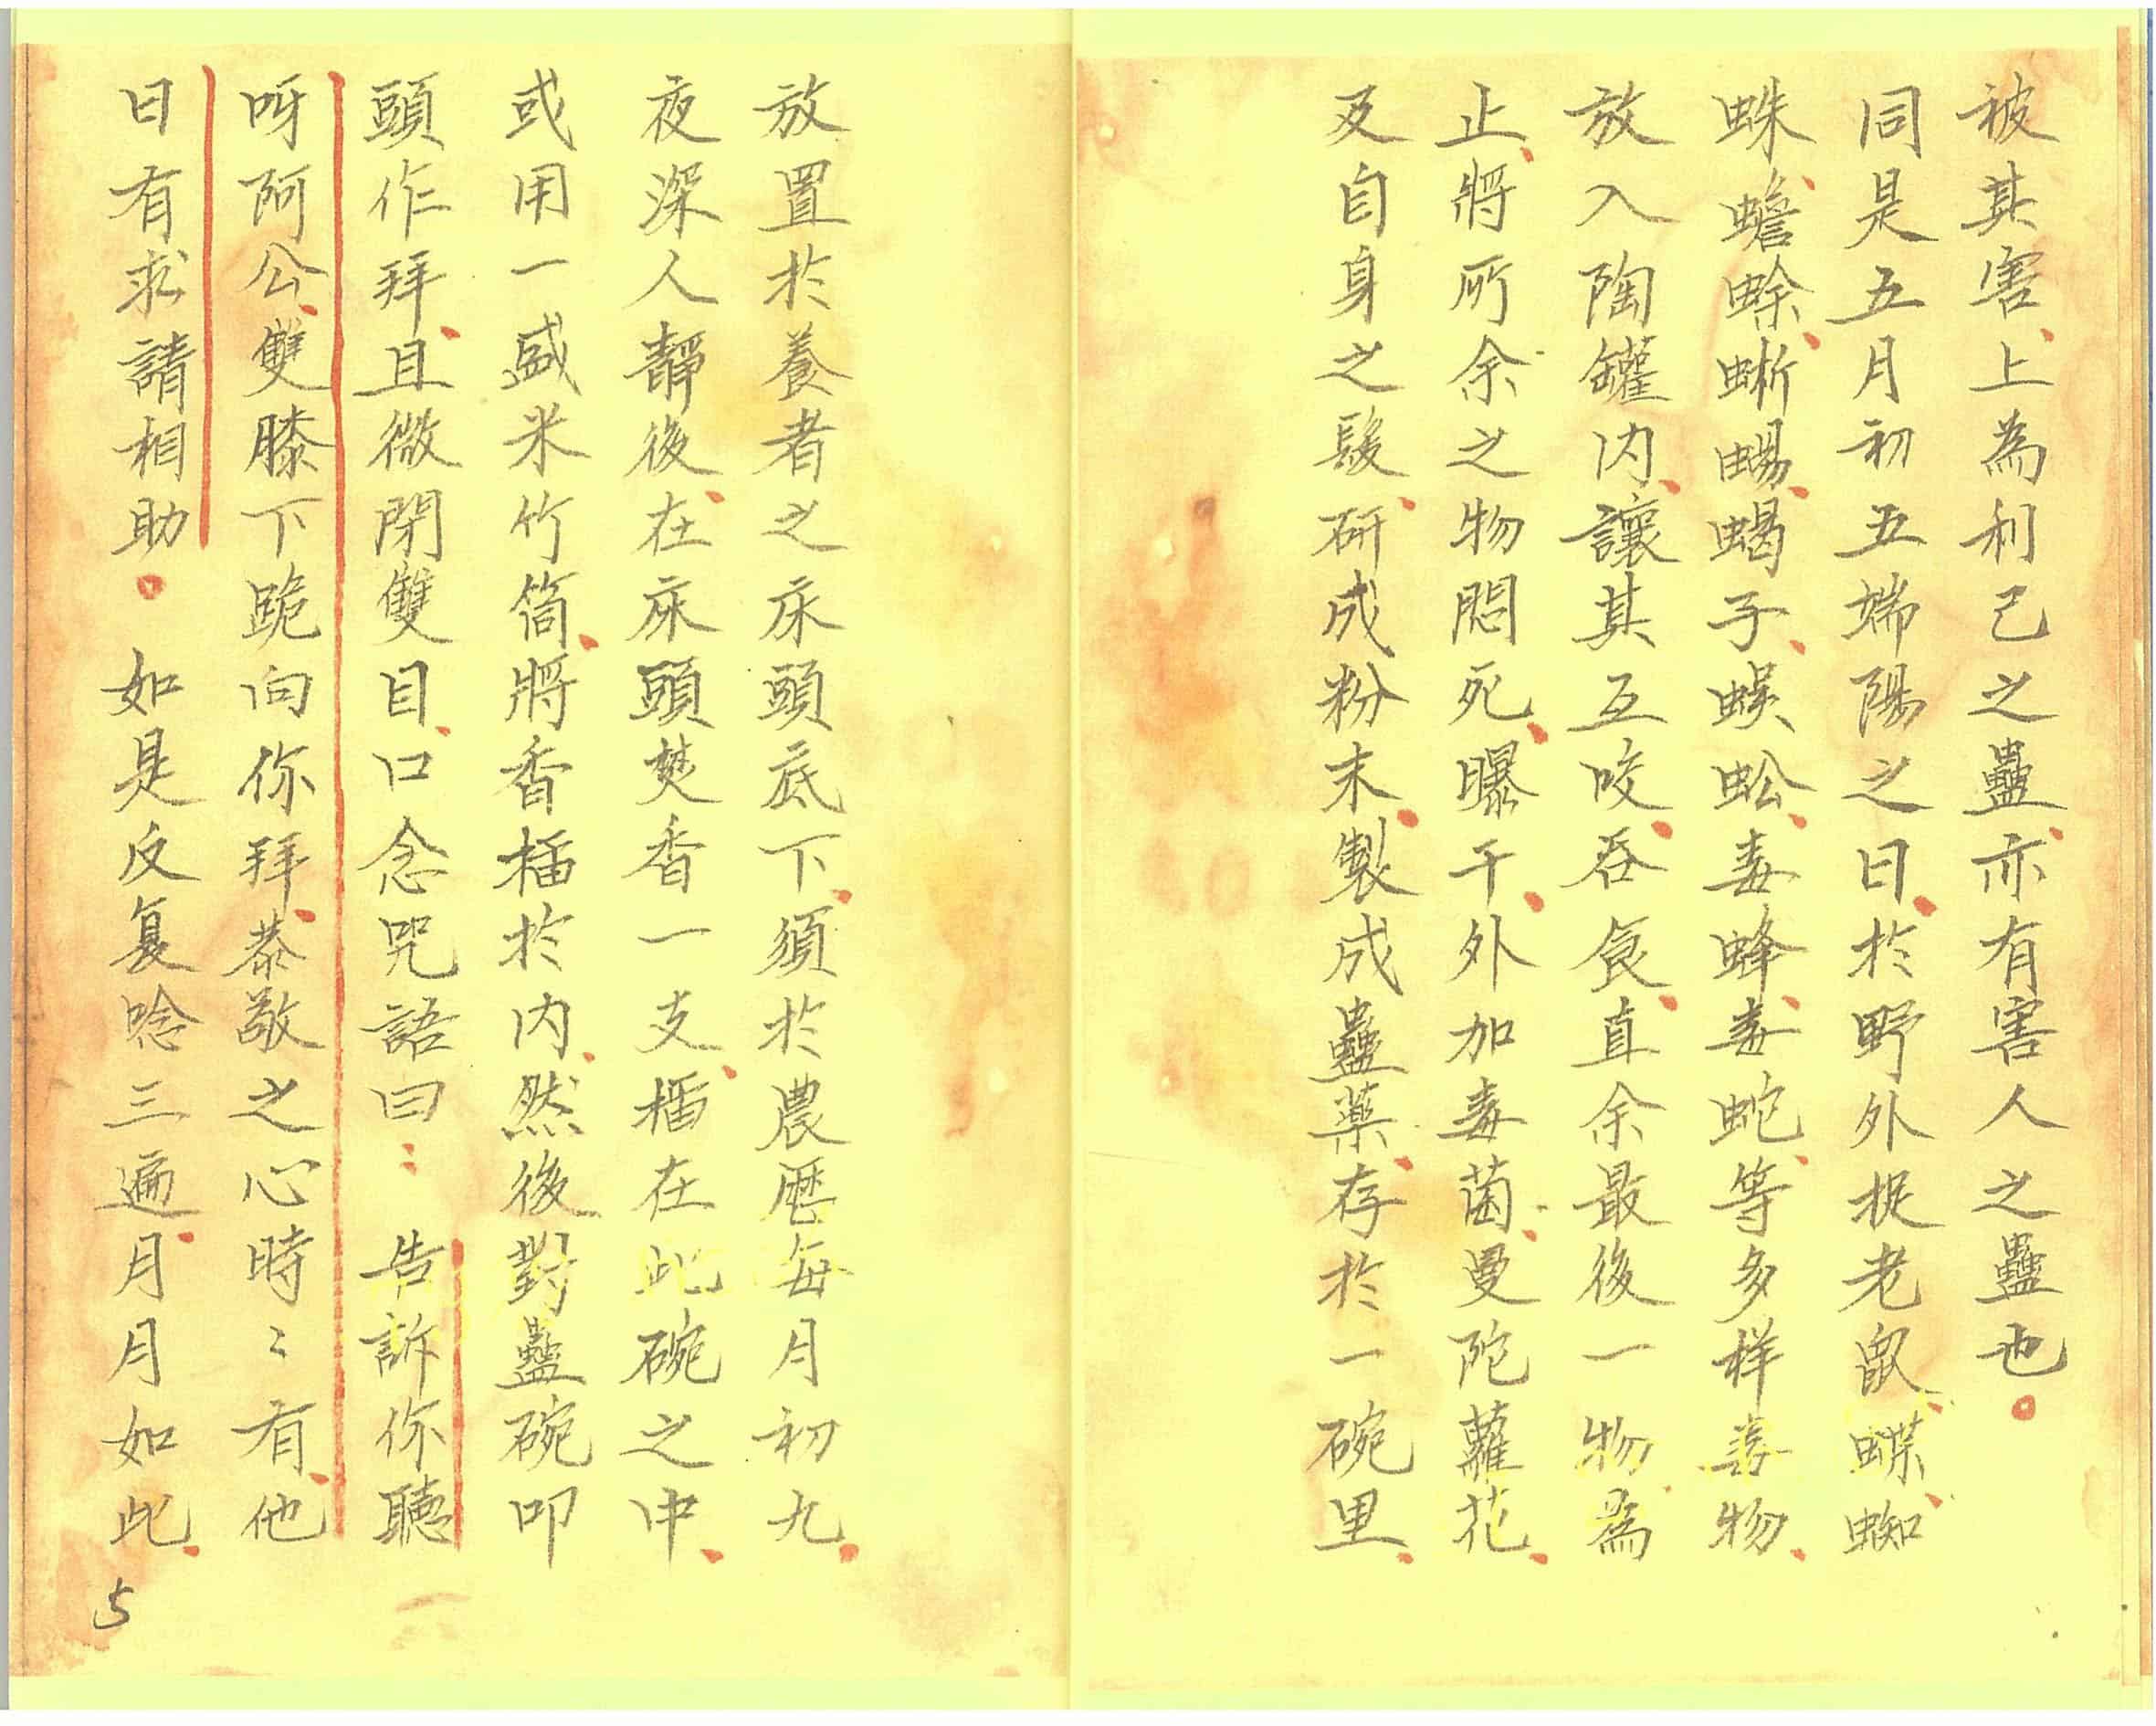 被其害、上為利己之蠱、亦有害人之蠱也。
同是五月初五端陽之日、於野外捉老鼠、蝶、蜘
蛛、蟾蜍、蜥蜴、蝎子、蜈蚣、毒蜂、毒蛇、等多样毒物、
放入陶罐内、讓其互咬、吞食、直余最後一物為
止、將所余之物悶死、曝干、外加毒菌、曼陀蘿花、
及自身之髮、研成粉末、製成蠱薬、存於一碗里、
放置於養者之床頭底下、須於農歷每月初九、
夜深人靜後、在床頭焚香一支、插在此碗之中、
或用一盛米竹筒、將香插於内、然後對蠱碗叩
頭作拜、且微閉雙目、口念咒語曰：告訴你聽
呀阿公、雙膝下跪向你拜、恭敬之心時〻有、他
日有求請相助。如是反复唸三遍、月月如此、
5